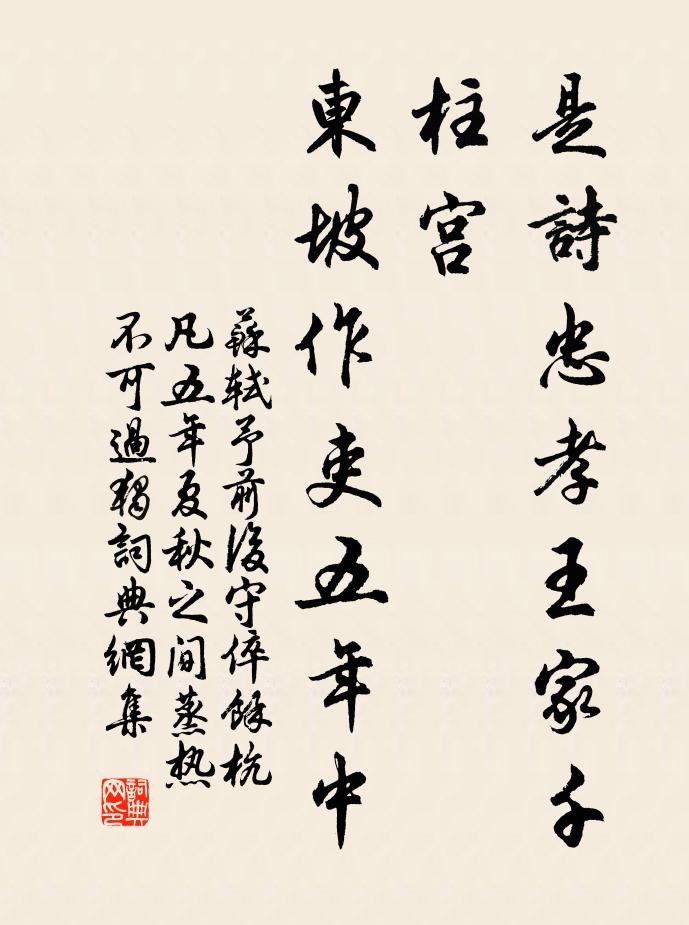 是詩忠孝王家千
柱宮
東坡作吏五年中
蘇軾予前後守倅餘杭
凡五年夏秋之间蒸热
不可過獨詞典網集
詞典
网印